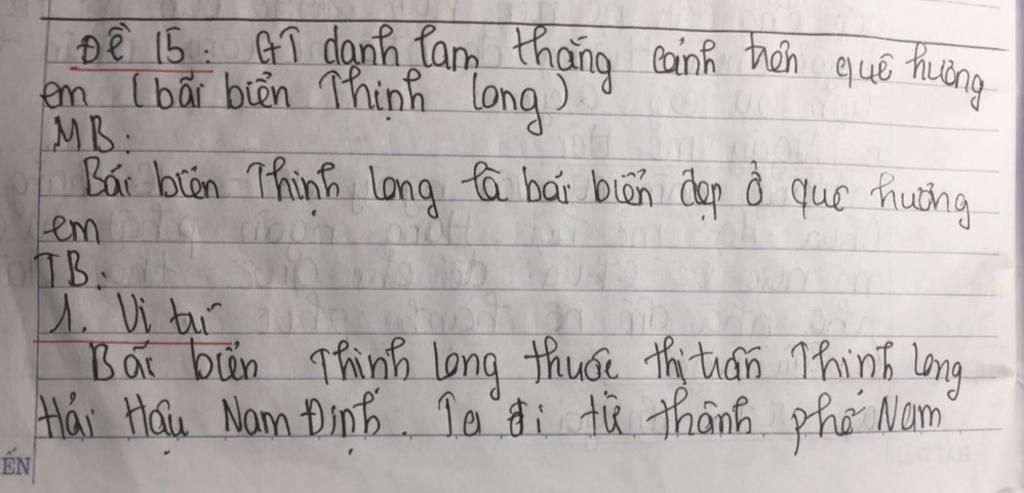 Đề 15: GT danh lam thắng cảnh trên quê hương
em (bãi biển Thịnh Long)
MB:
Bãi biển Thịnh Long là bãi biển đẹp ở quê hương
em
TB:
1. Vị trí
Bãi biển Thịnh Long thuộc thị trấn Thịnh Long
Hải Hậu Nam Định. Ta đi từ thành phố Nam
ẾN